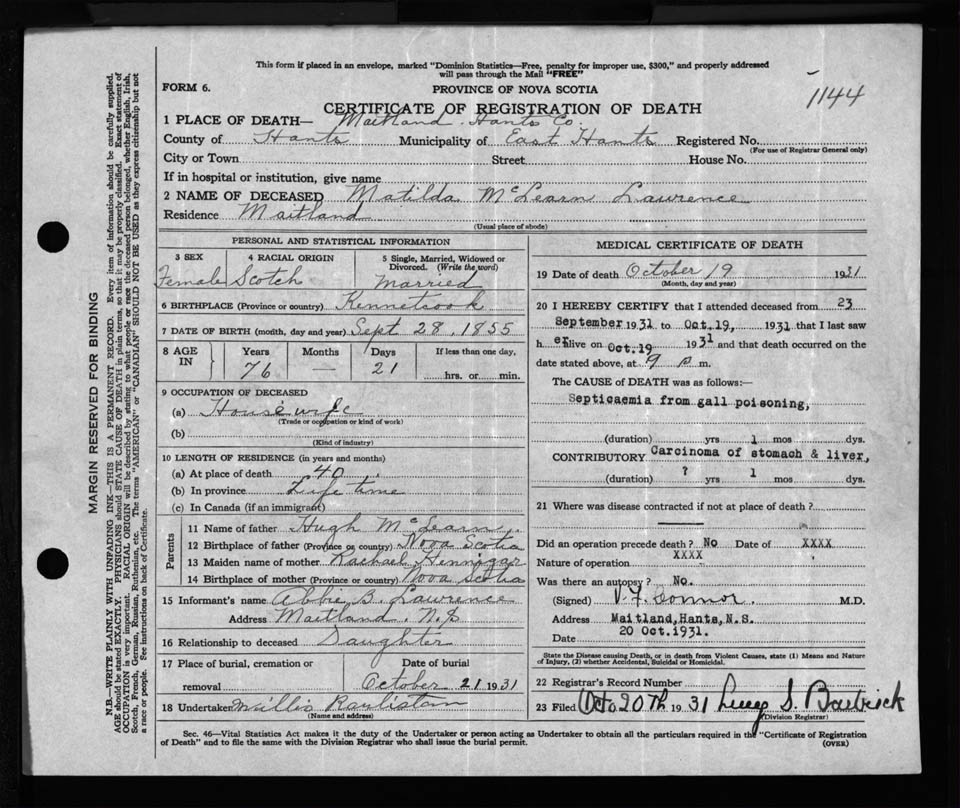 This form if placed in an envelope, marked "Dominion Statistics—Free, penalty for improper use, $300," and properly addressed
will pass through the Mail "FREE"
FORM 6.
PROVINCE OF NOVA SCOTIA
1144
CERTIFICATE OF REGISTRATION OF DEATH
1 PLACE OF DEATH— Maitland. Hants Co.
County of Hants Municipality of East Hants Registered No.
(For use of Registrar General only)
City or Town Street House No.
If in hospital or institution, give name
2 NAME OF DECEASED Matilda McLearn Lawrence
Residence Maitland
(Usual place of abode)
PERSONAL AND STATISTICAL INFORMATION
3 SEX 4 RACIAL ORIGIN 5 Single, Married, Widowed or
Divorced. (Write the word)
Female Scotch Married
6 BIRTHPLACE (Province or country) Kennetcook
7 DATE OF BIRTH (month, day and year) Sept 28, 1855
8 AGE IN Years Months Days If less than one day,
76 — 21 hrs. or min.
9 OCCUPATION OF DECEASED
(a) Housewife
(Trade or occupation or kind of work)
(b)
(Kind of industry)
10 LENGTH OF RESIDENCE (in years and months)
(a) At place of death 40
(b) In province Life time
(c) In Canada (if an immigrant)
Parents
11 Name of father Hugh McLearn
12 Birthplace of father (Province or country) Nova Scotia
13 Maiden name of mother Rachael Hennigar
14 Birthplace of mother (Province or country) Nova Scotia
15 Informant's name Abbie B. Lawrence
Address Maitland. N.S
16 Relationship to deceased Daughter
17 Place of burial, cremation or Date of burial
removal October 21 1931
18 Undertaker Willis
(Name and address)
MEDICAL CERTIFICATE OF DEATH
19 Date of death October 19 1931
(Month, day and year)
20 I HEREBY CERTIFY that I attended deceased from 23
September 1931 to Oct.19, 1931 that I last saw
her alive on Oct.19 1931 and that death occurred on the
date stated above, at 9 p m.
The CAUSE of DEATH was as follows:—
Septicaemia from gall poisoning,
(duration) yrs 1 mos dys.
CONTRIBUTORY Carcinoma of stomach & liver,
(duration) ? yrs 1 mos dys.
21 Where was disease contracted if not at place of death?
Did an operation precede death? No Date of XXXX
Nature of operation XXXX
Was there an autopsy? No.
(Signed) M.D.
Address Maitland,Hants,N.S.
Date 20 Oct.1931.
State the Disease causing Death, or in death from Violent Causes, state (1) Means and Nature
of Injury, (2) whether Accidental, Suicidal or Homicidal.
22 Registrar's Record Number
23 Filed Oct 20TH 1931
(Division Registrar)
Sec. 46—Vital Statistics Act makes it the duty of the Undertaker or person acting as Undertaker to obtain all the particulars required in the "Certificate of Registration
of Death" and to file the same with the Division Registrar who shall issue the burial permit. (OVER)
MARGIN RESERVED FOR BINDING
N.B.—WRITE PLAINLY WITH UNFADING INK—THIS IS A PERMANENT RECORD. Every item of information should be carefully supplied.
AGE should be stated EXACTLY. PHYSICIANS should STATE CAUSE OF DEATH in plain terms, so that it may be properly classified. Exact statement of
OCCUPATION is very important. RACIAL ORIGIN will be described by stating to what people or race the deceased person belonged, whether English, Irish,
Scotch, French, German, Russian, Ruthenian, etc. The terms "AMERICAN" or "CANADIAN" SHOULD NOT BE USED as they express citizenship but not
a race or people. See instructions on back of Certificate.